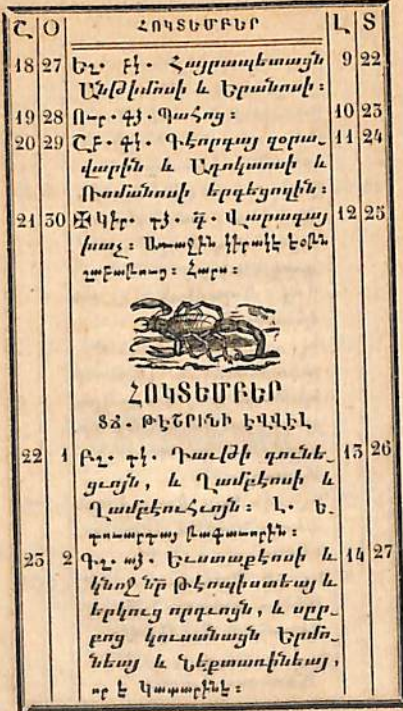 Շ Օ ՀՈԿՏԵՄԲԵՐ Լ Տ
18 27 Եշ. բկ. Հայրապետացն 9 22
Անթիմոսի և Երանոսի:
19 28 Ուր. գձ. Պահոց: 10 23
20 29 Շբ. գկ. Գէորգայ զօրա֊ 11 24
վարին և Ադոկտոսի և
Ռոմանոսի երգեցողին:
21 30 ✠ Կիր. դձ. Վարագայ 12 25
խաչ: Առաջին կիրակէ եօթն
շաբաթուց: Հարս:
ՀՈԿՏԵՄԲԵՐ
ՏՃ. ԹԷՇՐԻՆԻ ԷՎՎԷԼ
22 1 Բշ. դկ. Դաւթի դունե֊ 13 26
ցւոյն, և Ղամբէոսի և
Ղամբէուհւոյն: Լ. Ե.
Տրդատայ թագաւորին:
23 2 Գշ. աձ. Եւստաթէոսի և 14 27
կնոջ նր Թէոպիստեայ և
երկուց որդւոցն, և սըր֊
բոց կուսանացն Երմո֊
նեայ և Նէքտառինեայ,
որ է Կատարինէ: